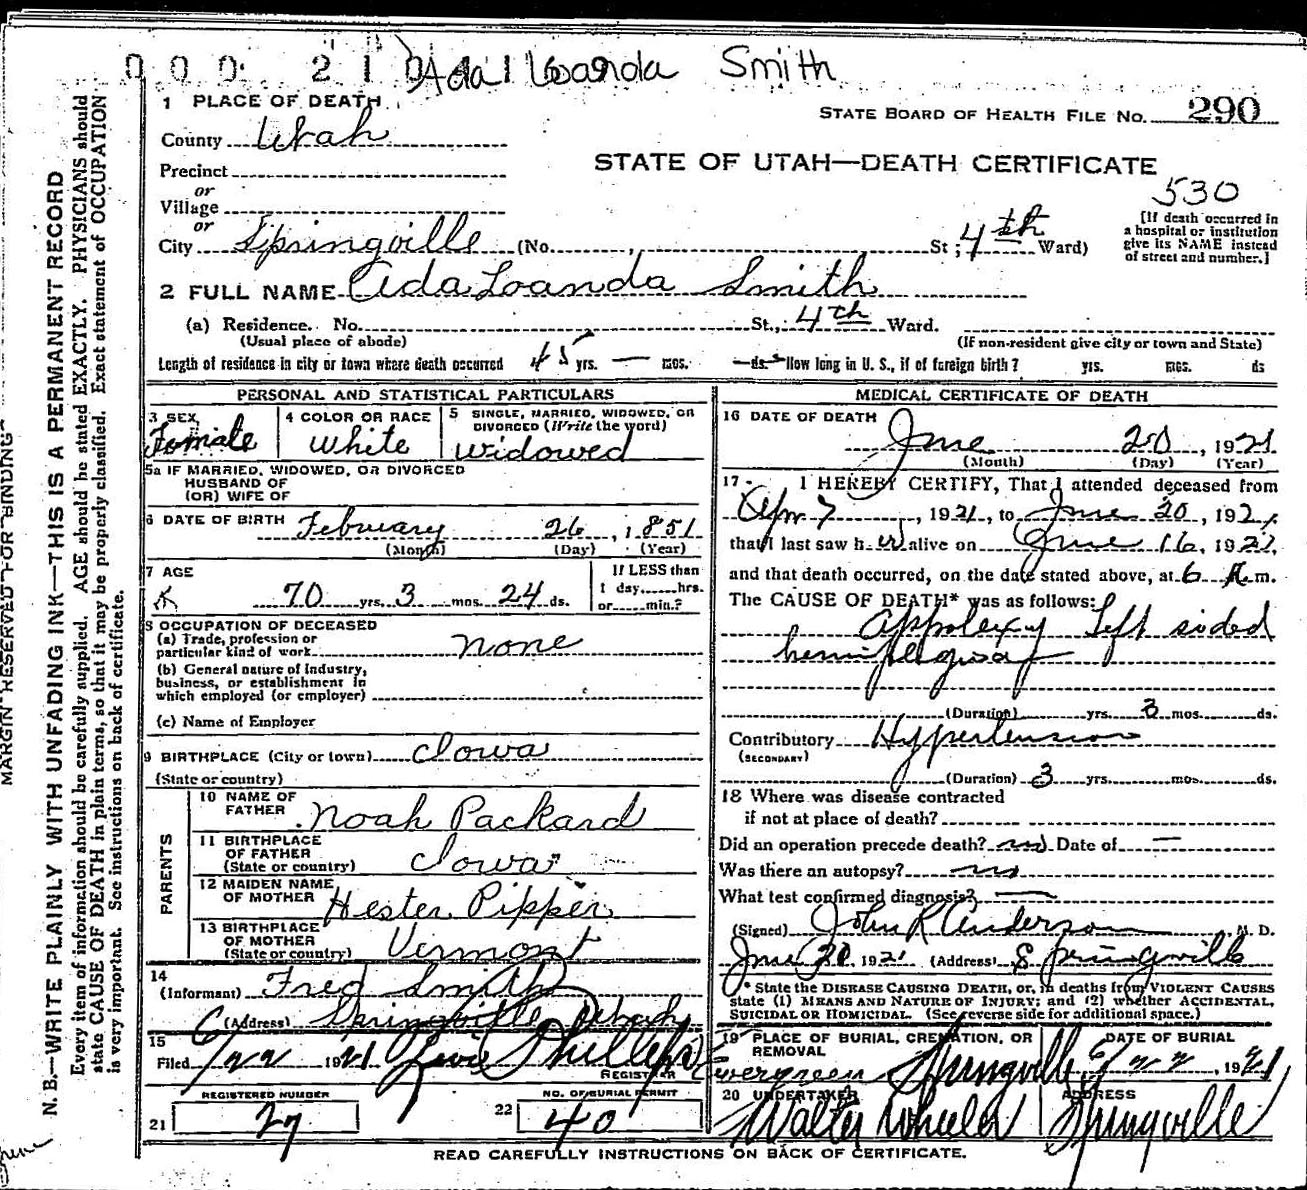 0 0 0 2 1 0 Ada Loanda Smith
1 PLACE OF DEATH
STATE BOARD OF HEALTH FILE NO. 290
County Utah
STATE OF UTAH—DEATH CERTIFICATE
Precinct
530
or
Village
or
City Springville (No. , St; 4th Ward)
[If death occurred in
a hospital or institution
give its NAME instead
of street and number.]
2 FULL NAME Ada Loanda Smith
(a) Residence. No. St., 4th Ward.
(Usual place of abode)
(If non-resident give city or town and State)
Length of residence in city or town where death occurred 45 yrs. — mos. — ds. How long in U. S., if of foreign birth? yrs. mos. ds
PERSONAL AND STATISTICAL PARTICULARS
3 SEX
Female
4 COLOR OR RACE
White
5 SINGLE, MARRIED, WIDOWED, OR
DIVORCED (Write the word)
Widowed
5a IF MARRIED, WIDOWED, OR DIVORCED
HUSBAND OF
(OR) WIFE OF
6 DATE OF BIRTH February 26, 1851
(Month) (Day) (Year)
7 AGE
70 yrs. 3 mos. 24 ds.
If LESS than
1 day......hrs.
or......min.?
8 OCCUPATION OF DECEASED
(a) Trade, profession or
particular kind of work none
(b) General nature of industry,
business, or establishment in
which employed (or employer)
(c) Name of Employer
9 BIRTHPLACE (City or town) Iowa
(State or country)
PARENTS
10 NAME OF
FATHER Noah Packard
11 BIRTHPLACE
OF FATHER
(State or country) Iowa
12 MAIDEN NAME
OF MOTHER Hester Pipper
13 BIRTHPLACE
OF MOTHER
(State or country) Vermont
14
(Informant) Fred Smith
(Address) Springville Utah
15
Filed 6/22 1921
REGISTRAR
REGISTERED NUMBER
21 27
NO. OF BURIAL PERMIT
22 40
MEDICAL CERTIFICATE OF DEATH
16 DATE OF DEATH
June 20, 1921
(Month) (Day) (Year)
17 I HEREBY CERTIFY, That I attended deceased from
Apr 7, 1921, to June 20, 1921,
that I last saw her alive on June 16, 1921,
and that death occurred, on the date stated above, at 6 A.m.
The CAUSE OF DEATH* was as follows:
Appolexy Left sided
(Duration) yrs. 3 mos. ds.
Contributory Hypertension
(SECONDARY)
(Duration) 3 yrs. mos. ds.
18 Where was disease contracted
if not at place of death?
Did an operation precede death? no Date of —
Was there an autopsy? no
What test confirmed diagnosis? —
(Signed) John R Anderson M. D.
June 20, 1921 (Address) Springville
* State the DISEASE CAUSING DEATH, or, in deaths from VIOLENT CAUSES
state (1) MEANS AND NATURE OF INJURY; and (2) whether ACCIDENTAL,
SUICIDAL OR HOMICIDAL. (See reverse side for additional space.)
19 PLACE OF BURIAL, CREMATION, OR
REMOVAL
Evergreen Springville
DATE OF BURIAL
6/22, 1921
20 UNDERTAKER
Walter Wheeler
ADDRESS
Springville
READ CAREFULLY INSTRUCTIONS ON BACK OF CERTIFICATE.
MARGIN RESERVED FOR BINDING
N. B.—WRITE PLAINLY WITH UNFADING INK—THIS IS A PERMANENT RECORD
Every item of information should be carefully supplied. AGE should be stated EXACTLY. PHYSICIANS should
state CAUSE OF DEATH in plain terms, so that it may be properly classified. Exact statement of OCCUPATION
is very important. See instructions on back of certificate.